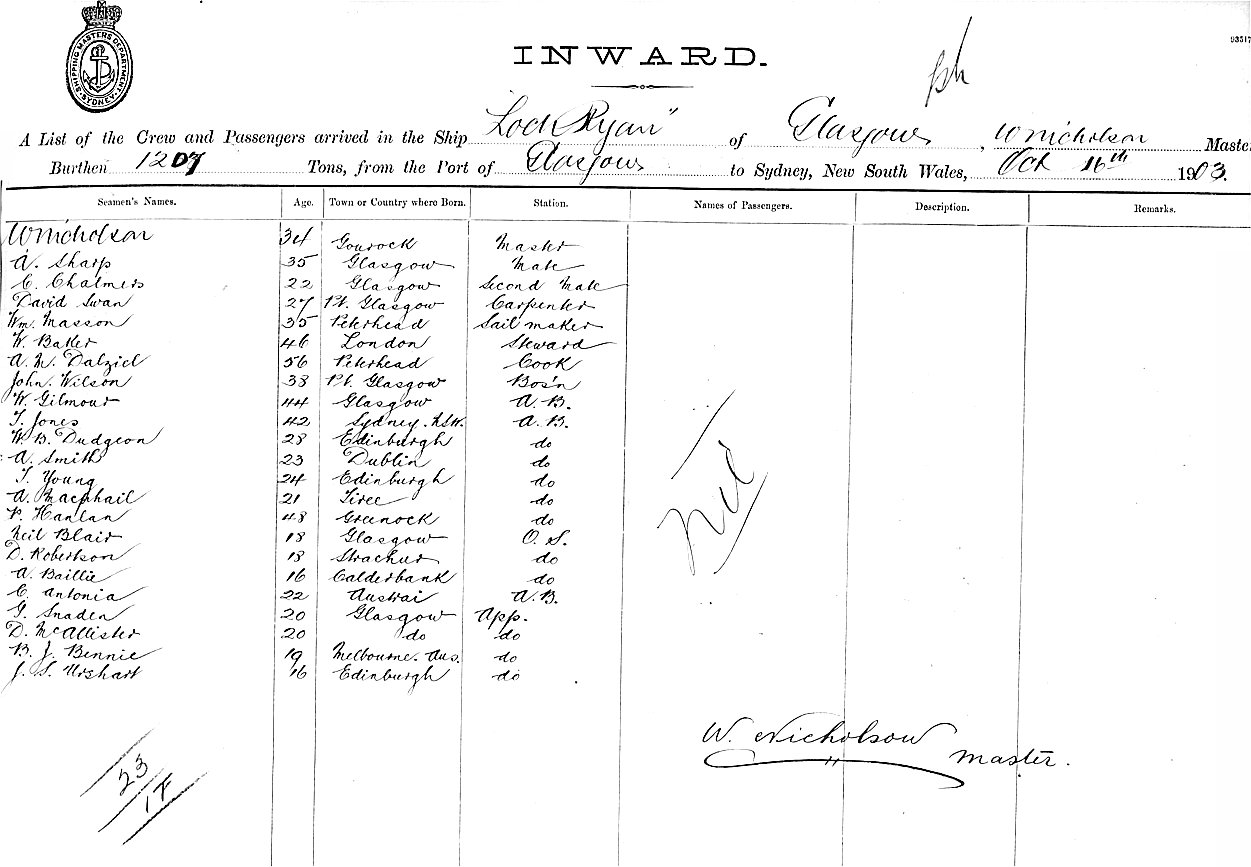 SHIPPING MASTERS DEPARTMENT SYDNEY
93517
INWARD.
A List of the Crew and Passengers arrived in the Ship "Loch Ryan" of Glasgow, W Nicholson Maste
Burthen 1207 Tons, from the Port of Glasgow to Sydney, New South Wales, Oct 16th 1903.
Seamen's Names. Age. Town or Country where Born. Station. Names of Passengers. Description. Remarks.
W Nicholson 34 Gourock Master
A. Sharp 35 Glasgow Mate
C. Chalmers 22 Glasgow Second Mate
David Swan 27 Pt. Glasgow Carpenter
Wm. Masson 35 Peterhead Sail maker
W. Baker 46 London Steward
A. M. Dalziel 56 Peterhead Cook
John. Wilson 38 Pt. Glasgow Bos'n
W. Gilmour 44 Glasgow A. B.
T. Jones 42 Sydney. NSW. A. B.
W. B. Dudgeon 28 Edinburgh do
A. Smith 23 Dublin do
T. Young 24 Edinburgh do
A. Macphail 21 Tiree do
P. Hanlan 48 Greenock do
Neil Blair 18 Glasgow O. S.
D. Robertson 18 Strachur do
A. Baillie 16 Calderbank do
C. Antonia 22 Austrai A. B.
G. Snaden 20 Glasgow App.
D. McAllister 20 do do
B. J. Bennie 19 Melbourne. Aus. do
J. S. Urghart 16 Edinburgh do
nil
W. Nicholson Master.
23